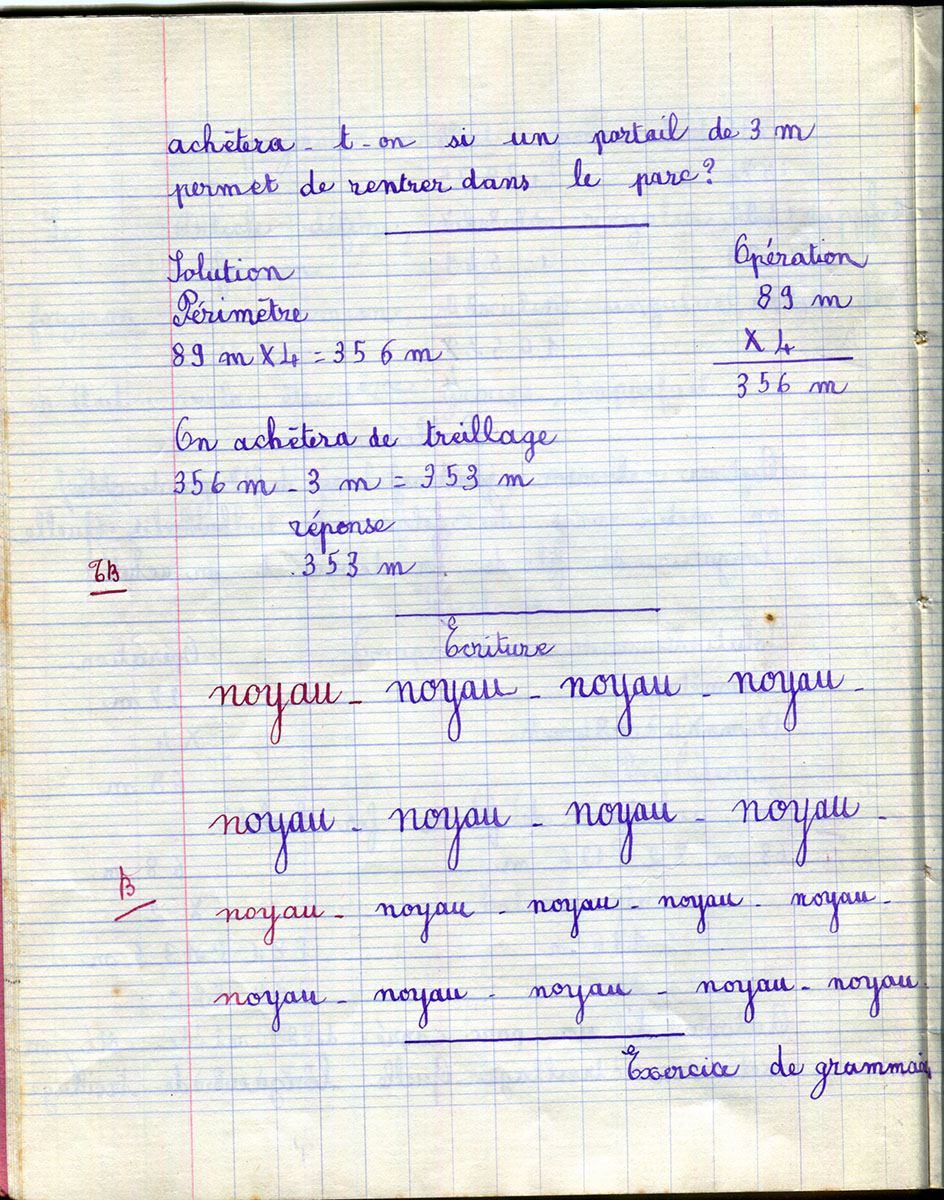 achètera - t - on si un portail de 3 m
permet de rentrer dans le parc?
Solution Opération
Périmètre 89 m
89 m X 4 = 356 m X 4
356 m
On achètera de treillage
356 m - 3 m = 353 m
réponse
353 m
TB
Ecriture
noyau - noyau - noyau - noyau -
noyau - noyau - noyau - noyau -
B
noyau - noyau - noyau - noyau - noyau -
noyau - noyau - noyau - noyau - noyau.
Exercice de grammai